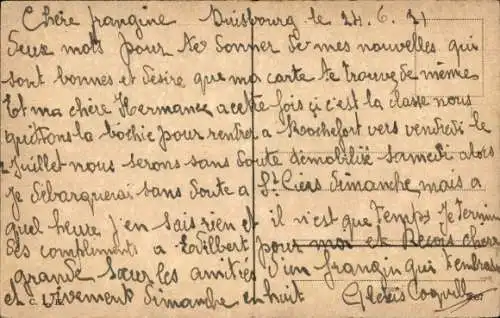 Chère frangine Duisbourg le 24.6.21
deux mots pour te donner de mes nouvelles qui
sont bonnes et désire que ma carte te trouve de même
Et ma chère Hermance a cette fois çi c'est la classe nous
quittons la bochie pour rentrer a Rochefort vers vendredi le
1 Juillet nous serons sans doute démobilisé samedi alors
je débarquerai sans doute a St Ciers dimanche mais a
quel heure j'en sais rien et il n'est que temps Je termine
des compliments a Edilbert pour moi et Reçois chère
grande sœur les amitiés d'un frangin qui t'embrasse
et vivement dimanche en huit Alexis